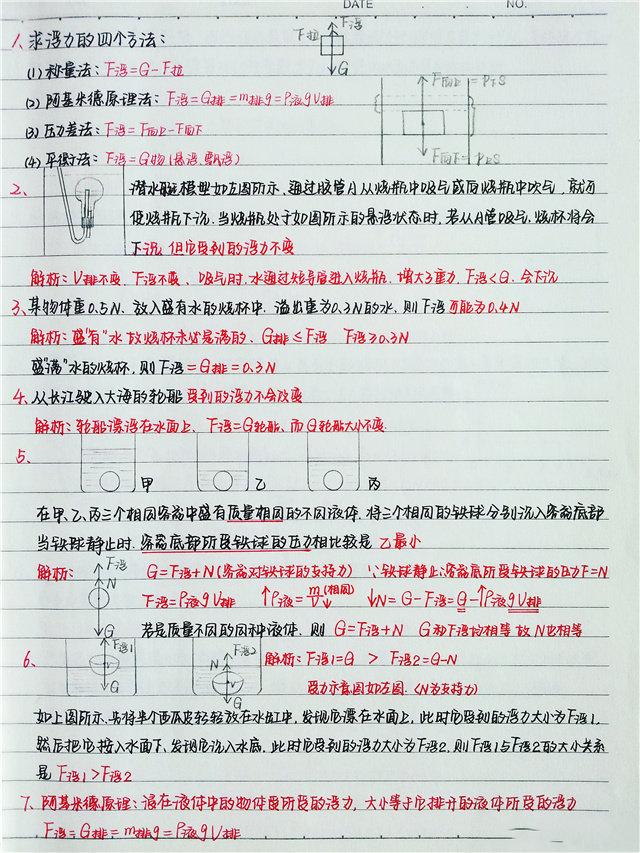 DATE . . NO.
1、求浮力的四个方法：
F浮
F拉
G
(1) 称量法：F浮=G-F拉
(2) 阿基米德原理法：F浮=G排=m排g=ρ液gV排
(3) 压力差法：F浮=F向上-F向下
(4) 平衡法：F浮=G物(悬浮、飘浮)
F向上=P下S
F向下=P上S
2、潜水艇模型如左图所示、通过胶管A从烧瓶中吸气或向烧瓶中吹气，就可
使烧瓶下沉.当烧瓶处于如图所示的悬浮状态时,若从A管吸气,烧杯将会
下沉,但它受到的浮力不变
解析:V排不变、F浮不变、吸气时,水通过短导扇进入烧瓶,增大了重力,F浮<G.会下沉
3、某物体重0.5N、放入盛有水的烧杯中.溢出重为0.3N的水、则F浮可能为0.4N
解析:盛"有"水故烧杯未必是满的、G排≤F浮 F浮≥0.3N
盛"满"水的烧杯,则F浮=G排=0.3N
4、从长江驶入大海的轮船受到的浮力不会改变
解析:轮船漂浮在水面上、F浮=G轮船、而G轮船大小不变.
5、
甲 乙 丙
在甲、乙、丙三个相同容器中盛有质量相同的不同液体.将三个相同的铁球分别沉入容器底部
当铁球静止时.容器底部所受铁球的压力相比较是 乙最小
解析: G=F浮+N(容器对铁球的支持力) ∵铁球静止∴容器底所受铁球的压力F=N
F浮
N
G
F浮=ρ液gV排 ↑ρ液=m/V(相同)↓ ↓N=G-F浮=G-↑ρ液gV排
若是质量不同的同种液体.则 G=F浮+N G和F浮均相等故N也相等
6、
F浮1
G
F浮2
N
G
解析:F浮1=G > F浮2=G-N
受力示意图如左图.(N为支持力)
如上图所示.先将半个西瓜皮轻轻放在水缸中,发现它漂在水面上,此时它受到的浮力大小为F浮1,
然后把它按入水面下、发现它沉入水底.此时它受到的浮力大小为F浮2,则F浮1与F浮2的大小关系
是 F浮1>F浮2
7、阿基米德原理:浸在液体中的物体受所受的浮力,大小等于它排开的液体所受的浮力
F浮=G排=m排g=ρ液gV排